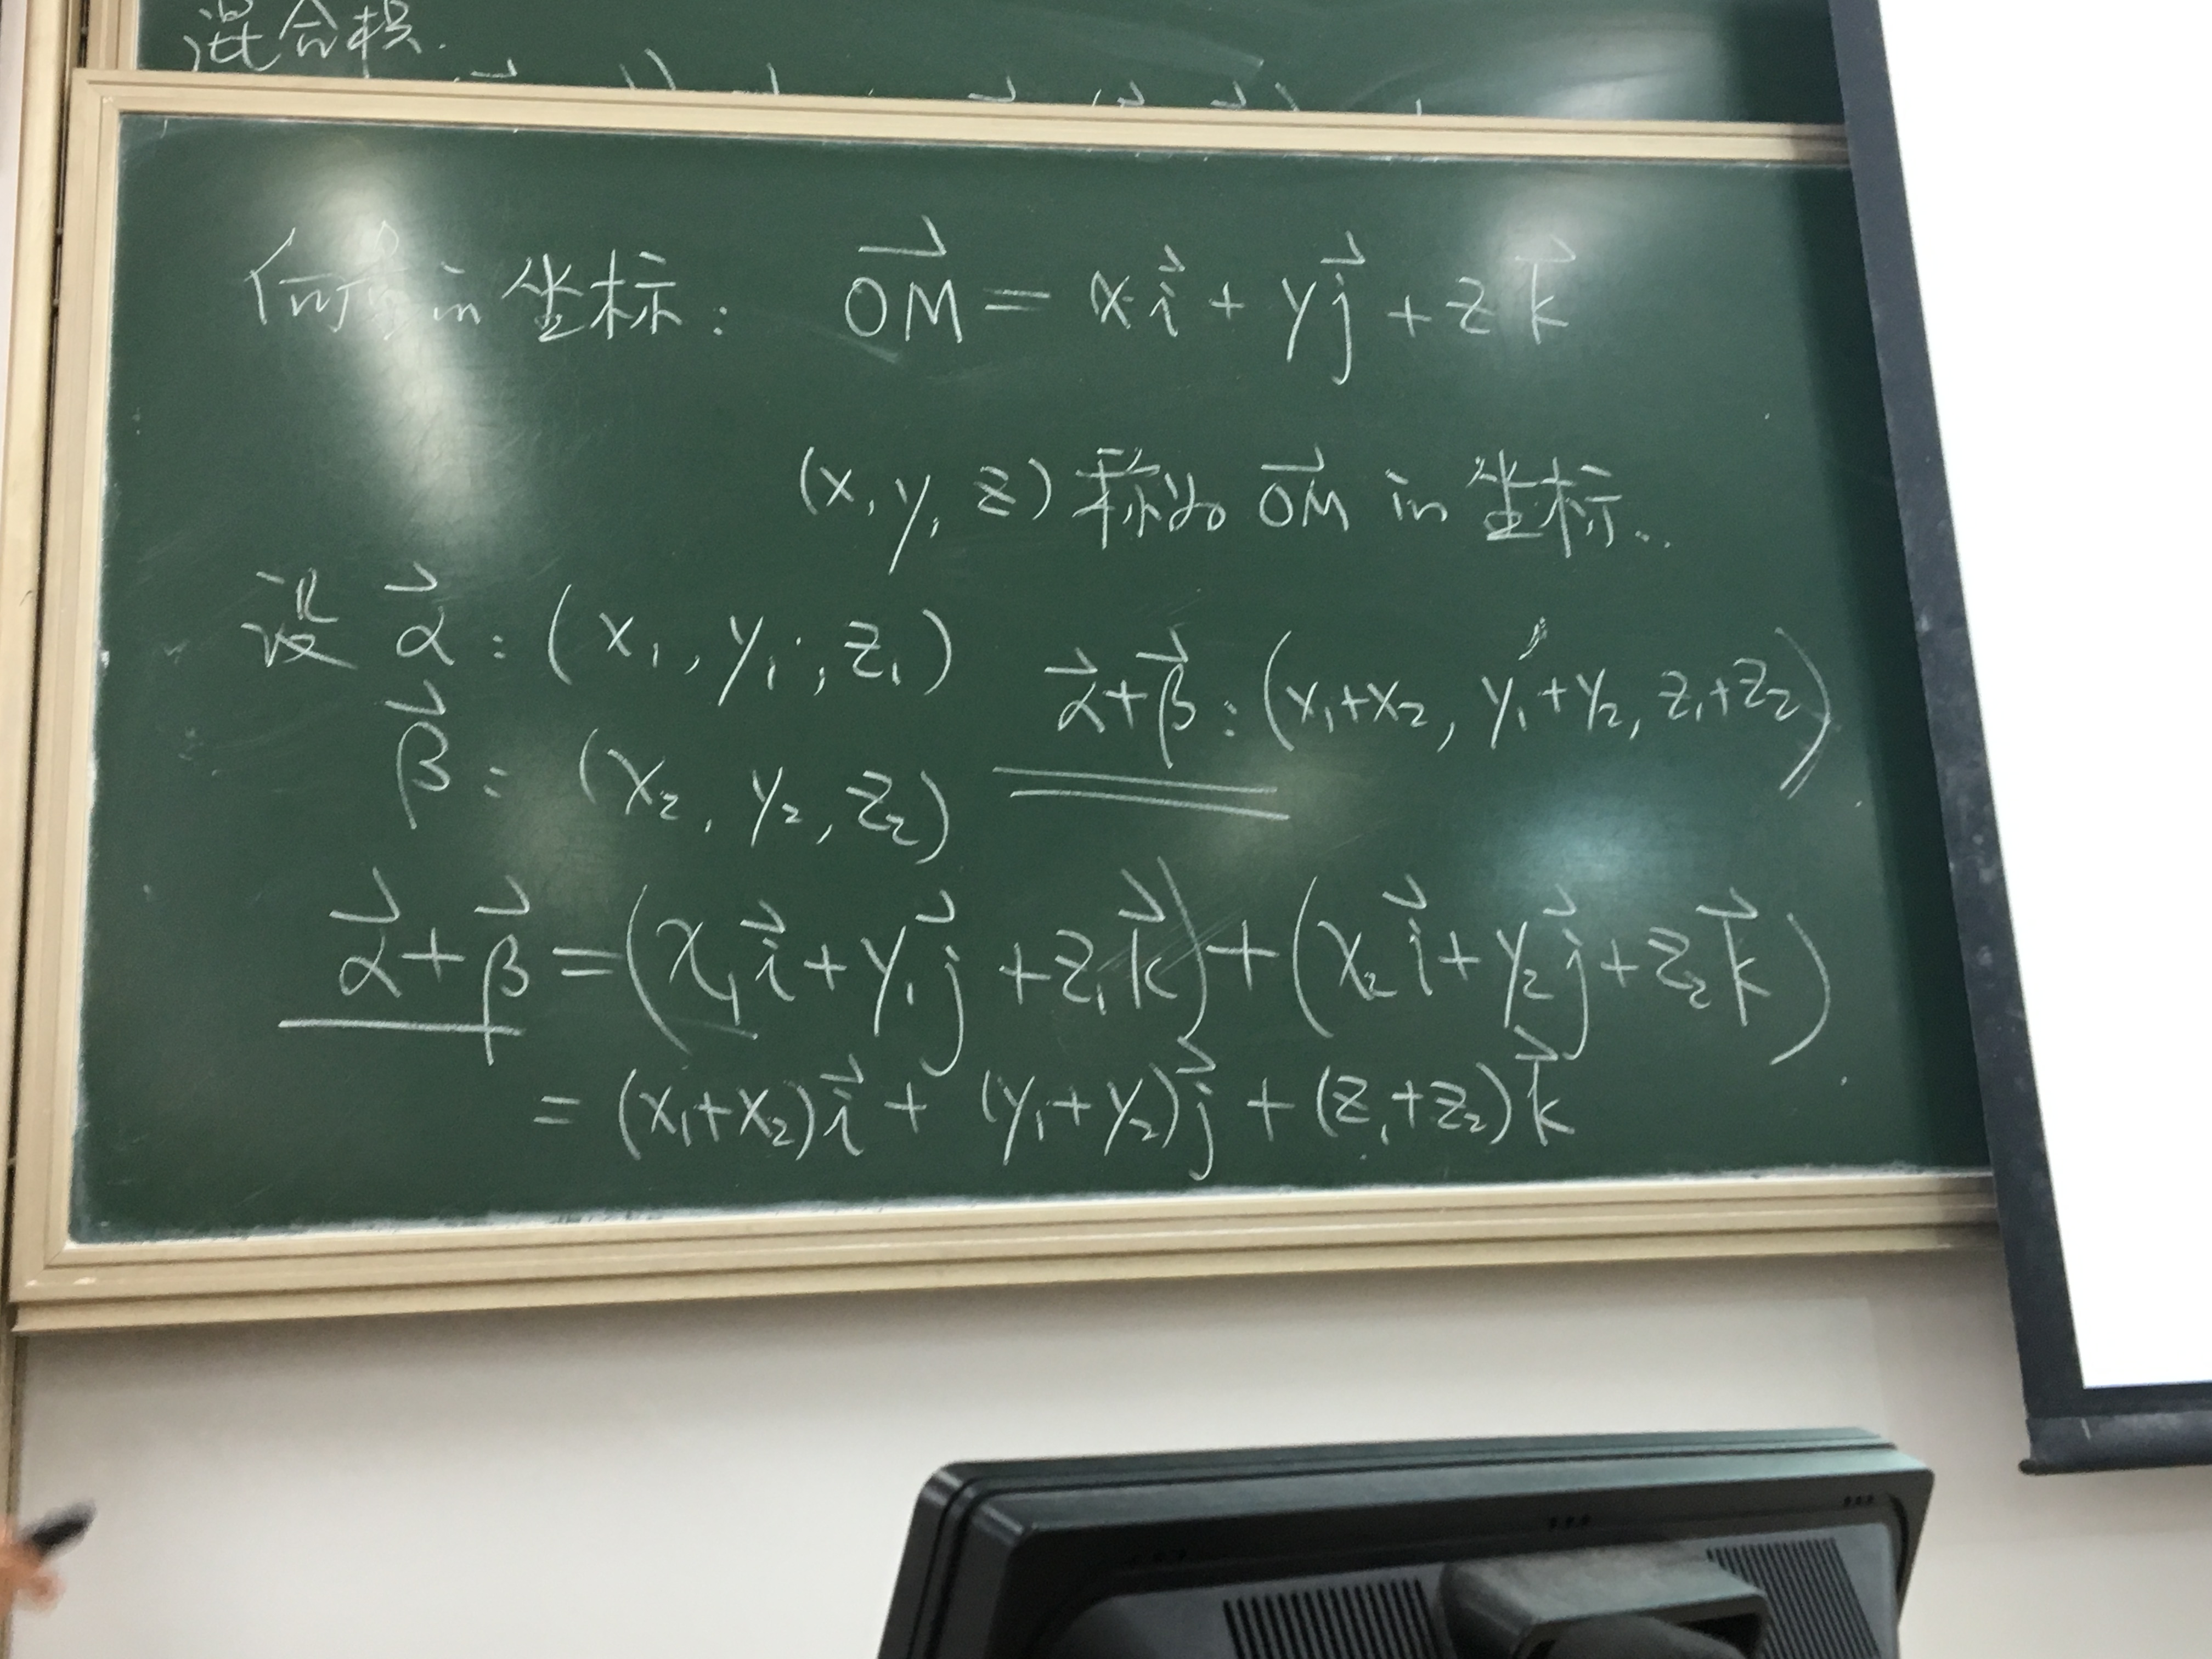 混合积.
向量in坐标: $\overrightarrow{OM} = x\vec{i} + y\vec{j} + z\vec{k}$
(x, y, z) 称为 $\overrightarrow{OM}$ in 坐标..
设 $\vec{\alpha}$ : $(x_1, y_1, z_1)$
$\vec{\alpha}+\vec{\beta}$ : $(x_1+x_2, y_1+y_2, z_1+z_2)$
$\vec{\beta}$ : $(x_2, y_2, z_2)$
$\vec{\alpha}+\vec{\beta} = (x_1\vec{i}+y_1\vec{j}+z_1\vec{k})+(x_2\vec{i}+y_2\vec{j}+z_2\vec{k})$
$= (x_1+x_2)\vec{i}+(y_1+y_2)\vec{j}+(z_1+z_2)\vec{k}$